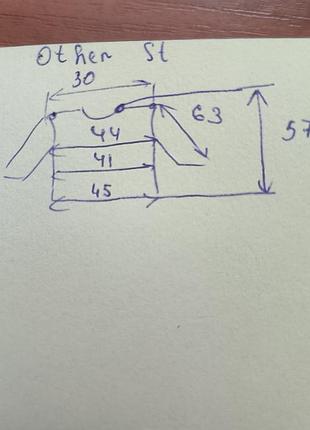 Other St
30
63
57
44
41
45